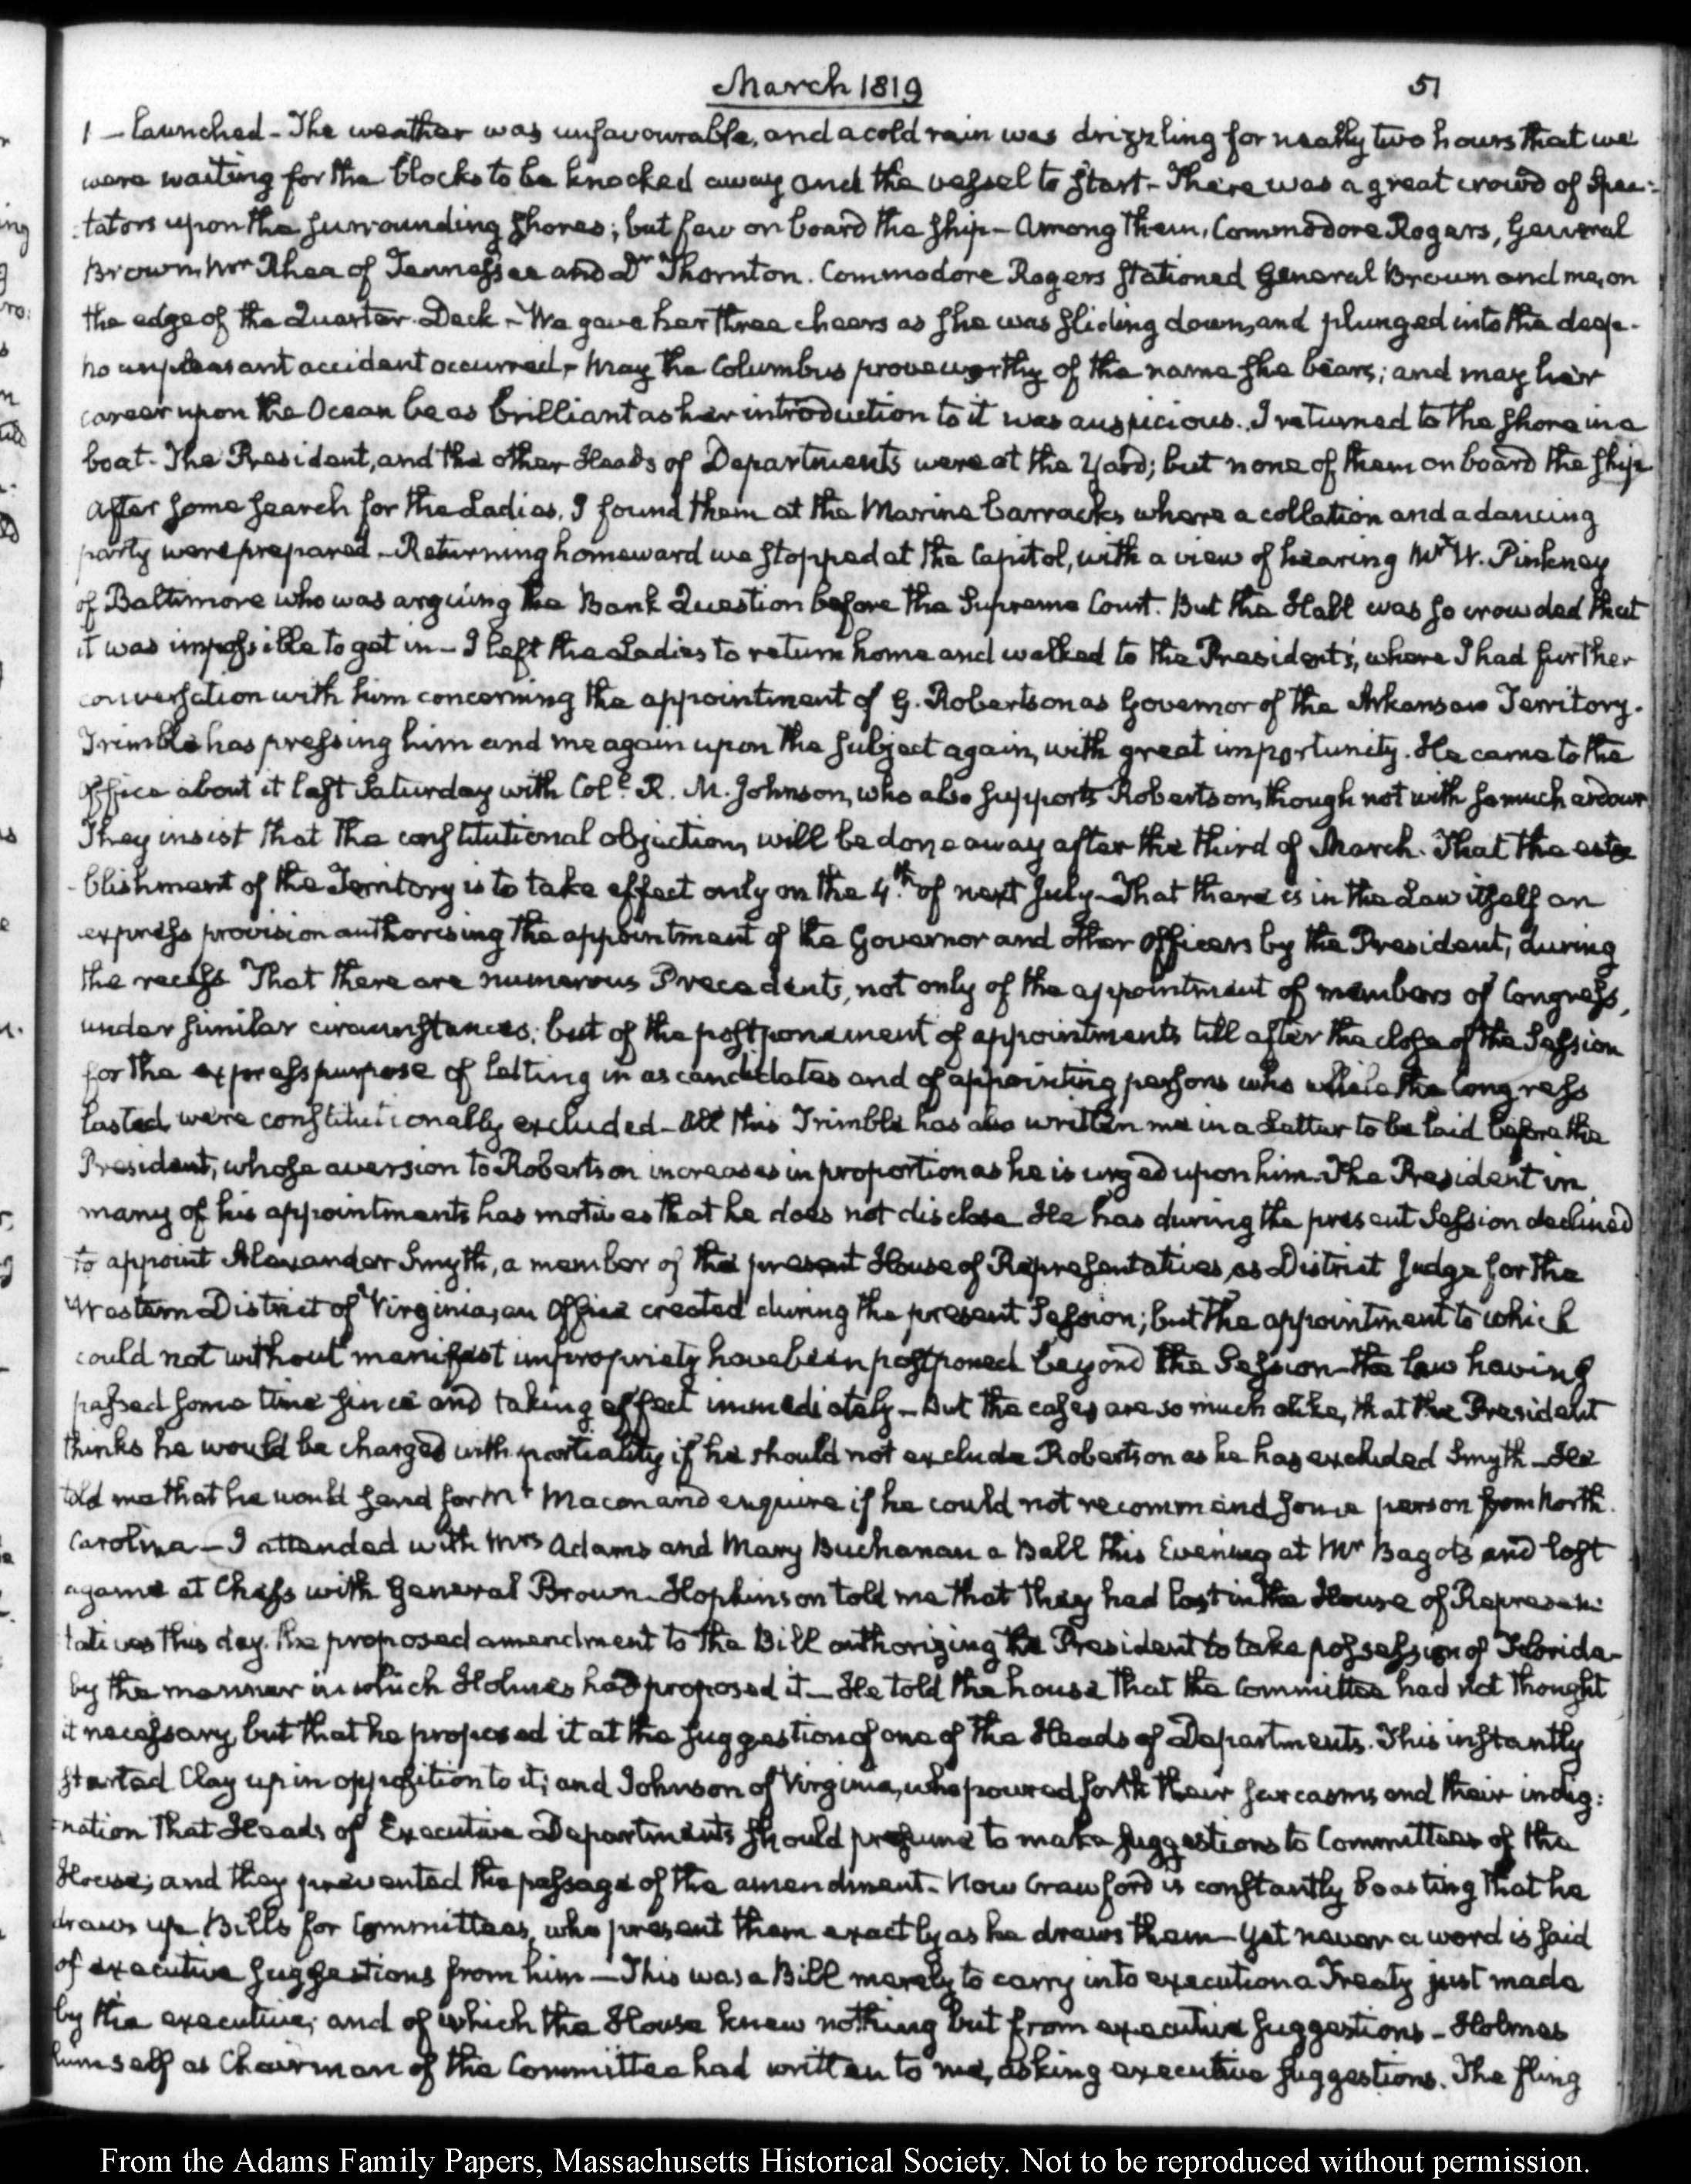 March 1819
51
1 — launched - The weather was unfavourable, and a cold rain was drizzling for neatly two hours that we
were waiting for the blocks to be knocked away and the vessel to start - There was a great crowd of Spec:
:tators upon the surrounding shores; but few on board the ship - Among them, Commodore Rogers, General
Brown, Mr Rhea of Tennessee and Dr Thornton. Commodore Rogers stationed General Brown and me, on
the edge of the Quarter Deck - We gave her three cheers as she was sliding down, and plunged into the deep.
no unpleasant accident occurred - May the Columbus prove worthy of the name she bears; and may her
career upon the Ocean be as brilliant as her introduction to it was auspicious. I returned to the shore in a
boat - The President, and the other Heads of Departments were at the Yard; but none of them on board the ship
After some search for the Ladies, I found them at the Marine barracks, where a collation and a dancing
party were prepared - Returning homeward we stopped at the Capitol, with a view of hearing Mr W. Pinkney
of Baltimore who was arguing the Bank Question before the Supreme Court. But the Hall was so crowded that
it was impossible to get in - I left the Ladies to return home and walked to the President's, where I had further
conversation with him concerning the appointment of G. Robertson as Governor of the Arkansaw Territory.
Trimble has pressing him and me again upon the subject again, with great importunity. He came to the
Office about it last Saturday with Coll. R. M. Johnson, who also supports Robertson, though not with so much ardour
They insist that the constitutional objection, will be done away after the third of March. That the esta
blishment of the Territory is to take effect only on the 4.th of next July - That there is in the Law itself an
express provision authorising the appointment of the Governor and other Officers by the President, during
the recess That there are numerous Precedents, not only of the appointment of members of Congress,
under similar circumstances; but of the postponement of appointments till after the close of the Session
for the express purpose of letting in as candidates and of appointing persons who while the Congress
lasted, were constitutionally excluded - All this Trimble has also written me in a Letter to be laid before the
President, whose aversion to Robertson increases in proportion as he is urged upon him. The President in
many of his appointments has motives that he does not disclose He has during the present Session declined
to appoint Alexander Smyth, a member of the present House of Representatives, as District Judge for the
Western District of Virginia, an Office created during the present Session; but the appointment to which
could not without manifest impropriety have been postponed beyond the Session - the law having
passed some time since and taking effect immediately - But the cases are so much alike, that the President
thinks he would be charged with partiality if he should not exclude Robertson as he has excluded Smyth - He
told me that he would send for Mr Macon and enquire if he could not recommend some person from North
Carolina - I attended with Mrs Adams and Mary Buchanan a Ball this Evening at Mr Bagots and lost
a game at Chess with General Brown - Hopkinson told me that they had lost in the House of Represen:
tatives this day. the proposed amendment to the Bill authorizing the President to take possession of Florida -
by the manner in which Holmes had proposed it - He told the house that the Committee had not thought
it necessary, but that he proposed it at the suggestion of one of the Heads of Departments. This instantly
started Clay up in opposition to it; and Johnson of Virginia, who poured forth their sarcasms and their indig:
:nation that Heads of Executive Departments should presume to make suggestions to Committees of the
House; and they prevented the passage of the amendment - Now Crawford is constantly boasting that he
draws up Bills for Committees, who present them exactly as he draws them - Yet never a word is said
of executive suggestions from him - This was a Bill merely to carry into execution a Treaty just made
by the executive; and of which the House knew nothing but from executive suggestions - Holmes
himself as Chairman of the Committee had written to me, asking executive suggestions. The fling
From the Adams Family Papers, Massachusetts Historical Society. Not to be reproduced without permission.